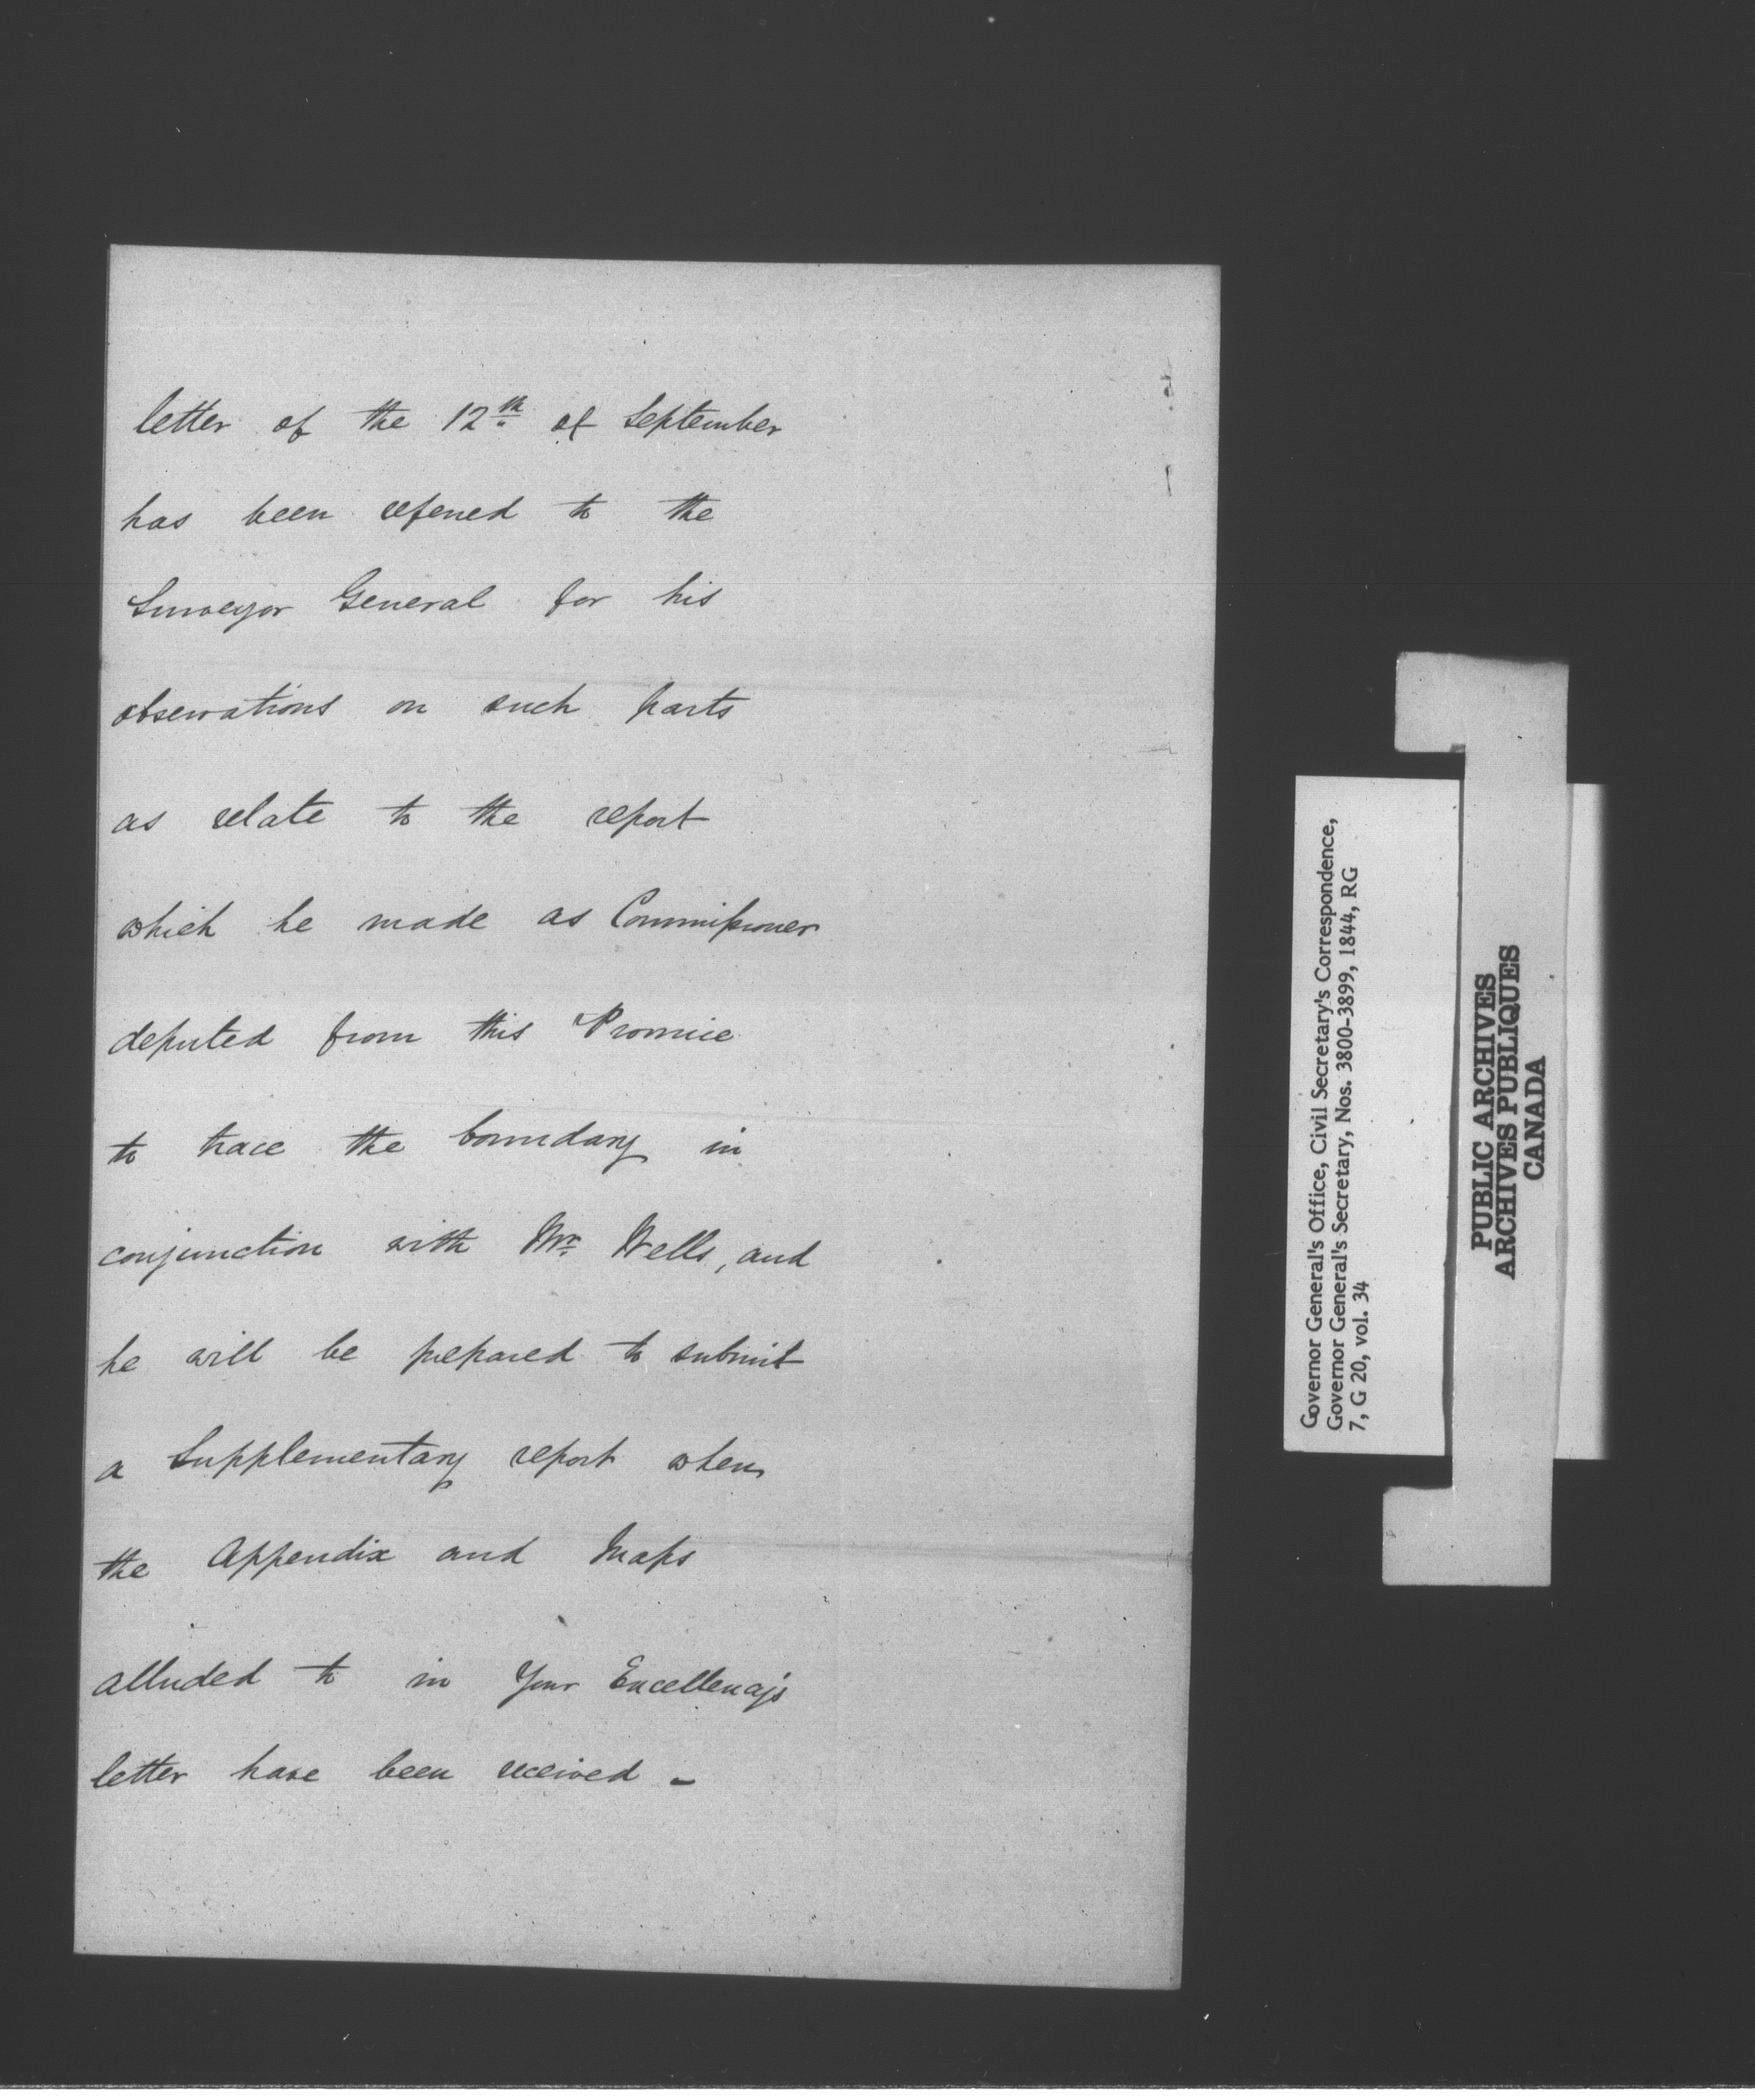 letter of the 12th of September
has been referred to the
Surveyor General for his
observations on such parts
as relate to the report
which he made as Commissioner
deputed from this Province
to trace the boundary in
conjunction with Mr. Wells, and
he will be prepared to submit
a Supplementary report when
the Appendix and Maps
alluded to in Your Excellency's
letter have been received -
Governor General's Office, Civil Secretary's Correspondence,
Governor General's Secretary, Nos. 3800-3899, 1844, RG
7, G 20, vol. 34
PUBLIC ARCHIVES
ARCHIVES PUBLIQUES
CANADA